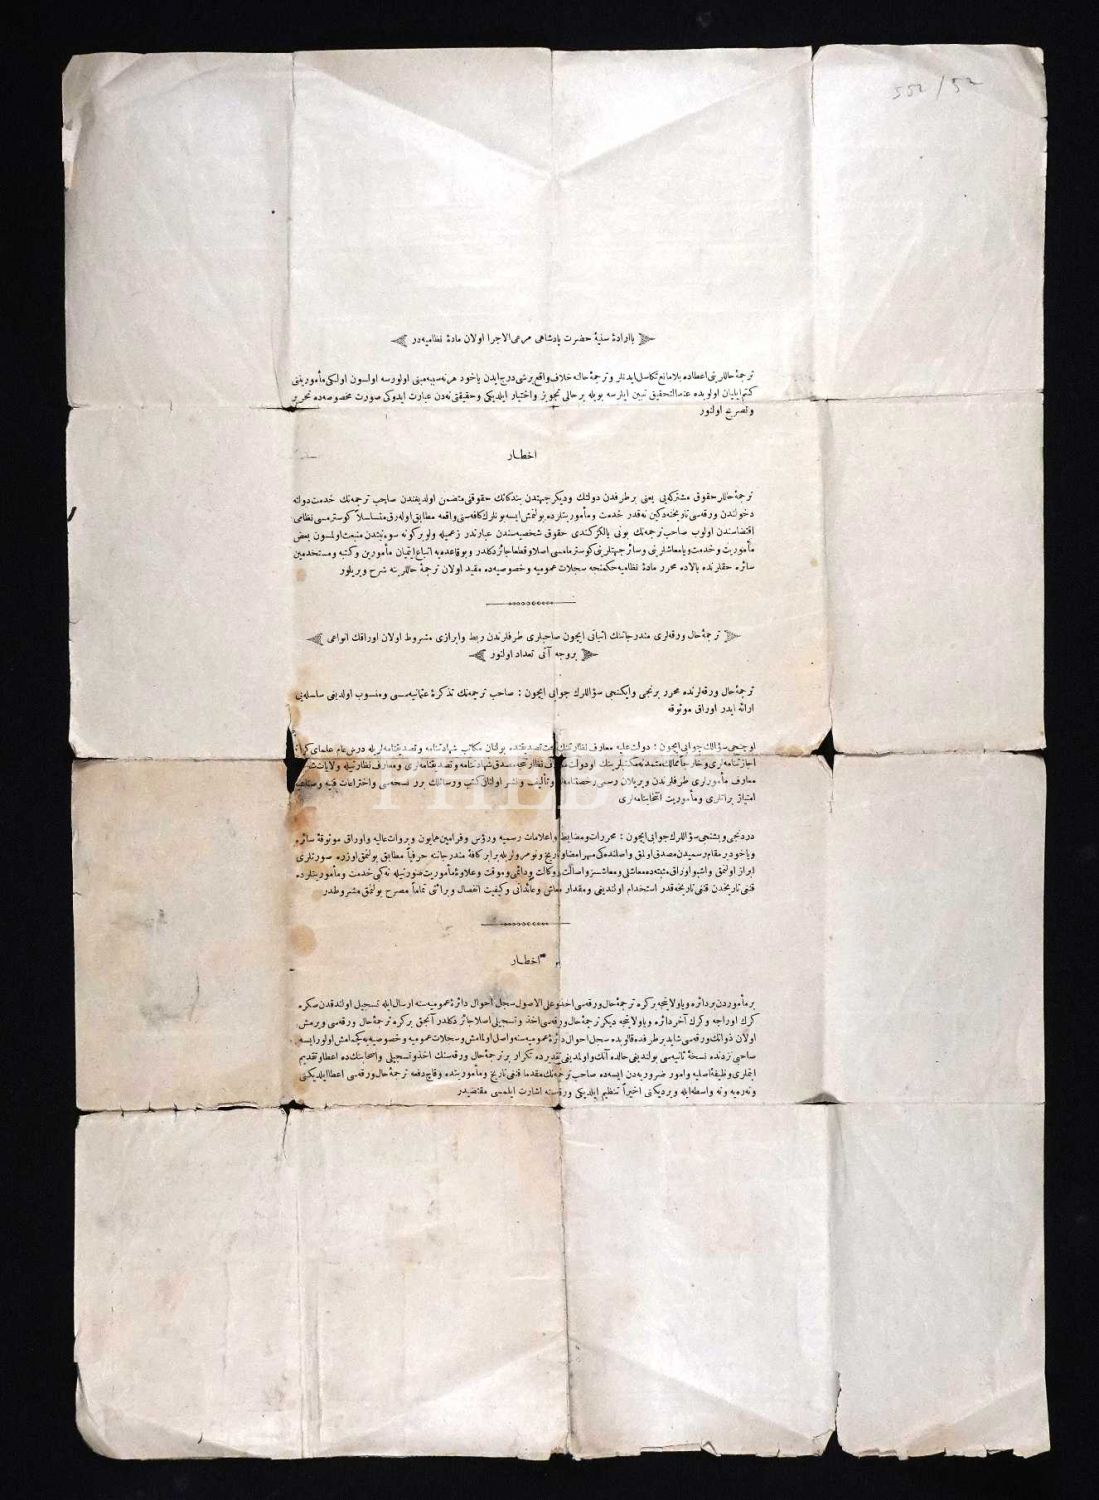 552/52
باارادهٔ سنیهٔ حضرت پادشاهی مرعی‌الاجرا اولان مادهٔ نظامیه‌در
ترجمهٔ حاللرینی اعطاده بلامانع تکاسل ایدنلر و ترجمهٔ حالنه خلاف واقع برشی درج ایدن یاخود هر نه سببه مبنی اولورسه اولسون اولکی مأموریتنی
کتم ایلیان اولوبده عندالتحقیق تبین ایلرسه بویله برحالی تجویز و اختیار ایلدیکی و حقیقتی نه‌دن عبارت ایدوکی صورت مخصوصه‌ده تحریر
و تصریح اولنور
اخطار
ترجمهٔ حاللر حقوق مشترکه‌یی یعنی بر طرفدن دولتك و دیکر جهتدن بندکانك حقوقنی متضمن اولدیغندن صاحب ترجمه‌نك خدمت دولته
دخولندن ورقه‌سی تاریخنه‌دکین نه‌قدر خدمت و مأموریتلرده بولنمش ایسه بونلرك کافه‌سنی واقعه مطابق اوله‌رق متسلسلاً کوسترمسی نظامی
اقتضاسندن اولوب صاحب ترجمه‌نك بونی یالکز کندی حقوق شخصیه‌سندن عبارتدر زعمیله ولو برکونه سوء‌نیتدن منبعث اولمسون بعض
مأموریت و خدمت و یا معاشلرینی و سائر جهتلرینی کوسترمامسی اصلا و قطعا جائز دکلدر و بو قاعده‌یه اتباع ایتمیان مأمورین و کتبه و مستخدمین
سائره حقلرنده بالاده محرر مادهٔ نظامیه حکمنجه سجلات عمومیه و خصوصیه‌ده مقید اولان ترجمهٔ حاللرینه شرح ویریلور
ترجمهٔ حال ورقه‌لری مندرجاتنك اثباتی ایچون صاحبلری طرفلرندن ربط و ابرازی مشروط اولان اوراقك انواعی
بروجه آتی تعداد اولنور
ترجمهٔ حال ورقه‌لرنده محرر برنجی و ایکنجی سؤاللرك جوابی ایچون : صاحب ترجمه‌نك تذکرهٔ عثمانیه‌سی و منسوب اولدیغی سلسله‌یی
ارائه ایدر اوراق موثوقه
اوچنجی سؤالك جوابی ایچون : دولت علیه معارف نظارتنك تحت تصدیقنده بولنان مکاتب شهادتنامه و تصدیقنامه‌لریله درس عام علمای کرام
اجازتنامه‌لری و خارجاً ممالك متمدنه مکتبلرینك او دولت معارف نظارتنجه مصدق شهادتنامه و تصدیقنامه‌لری و معارف نظارتیله ولایات
معارف مأمورلری طرفلرندن ویریلان رسمی رخصتنامه‌لر و تألیف و نشر اولنان کتب و رسائلك برر نسخه‌سی و اختراعات فنیه
امتیاز براتلری و مأموریت انتخابنامه‌لری
دردنجی و بشنجی سؤاللرك جوابی ایچون : محررات و مضابط و اعلامات رسمیه و رؤس و فرامین همایون و بروات عالیه و اوراق موثوقهٔ سائره
و یاخود بر مقام رسمیدن مصدق اولنق و اصلنده‌کی مهر امضا و تاریخ و نومرولریله برابر کافهٔ مندرجاتنه حرفیاً مطابق بولنمق اوزره صورتلری
ابراز اولنمق و اشبو اوراق مثبته‌ده معاشلی و معاشسز و اصالت و وکالت و دائمی و موقت و علاوهٔ مأموریت صورتیله نه‌کی خدمت و مأموریتلرده
قنغی تاریخدن قنغی تاریخه قدر استخدام اولندیغی و مقدار معاش و عائداتی و کیفیت انفصال و برائتی تماماً مصرح بولنمق مشروطدر
اخطار
بر مأموردن بر دائره و یا ولایتجه بر کره ترجمهٔ حال ورقه‌سی اخذ و علی‌الاصول سجل احوال دائرهٔ عمومیه‌سنه ارسال ایله تسجیل اولندقدن صکره
کرك او راجه و کرك آخر دائره و یا ولایتجه دیکر ترجمهٔ حال ورقه‌سی اخذ و تسجیلی اصلا جائز دکلدر آنجق بر کره ترجمهٔ حال ورقه‌سی ویرمش
اولان ذواتك ورقه‌سی شاید بر طرفده قالوبده سجل احوال دائرهٔ عمومیه‌سنه واصل اولمامش و سجلات عمومیه و خصوصیه‌یه کچمامش اولور ایسه
صاحبی نزدنده نسخهٔ ثانیه‌سی بولندیغی حالده آنك و اولمدیغی تقدیرده تکرار بر ترجمهٔ حال ورقه‌سنك اخذ و تسجیلی و اصحابنكده اعطا و تقدیم
ایتملری وظیفهٔ اصلیه و امور ضروریه‌دن ایسه‌ده صاحب ترجمه‌نك مقدما قنغی تاریخ و مأموریتده و قاچ دفعه ترجمهٔ حال ورقه‌سی اعطا ایلدیکنی
و نه‌ره‌یه و نه واسطه‌ایله ویردیکنی اخیراً تنظیم ایلدیکی ورقه‌سنه اشارت ایلمسی مقتضیدر